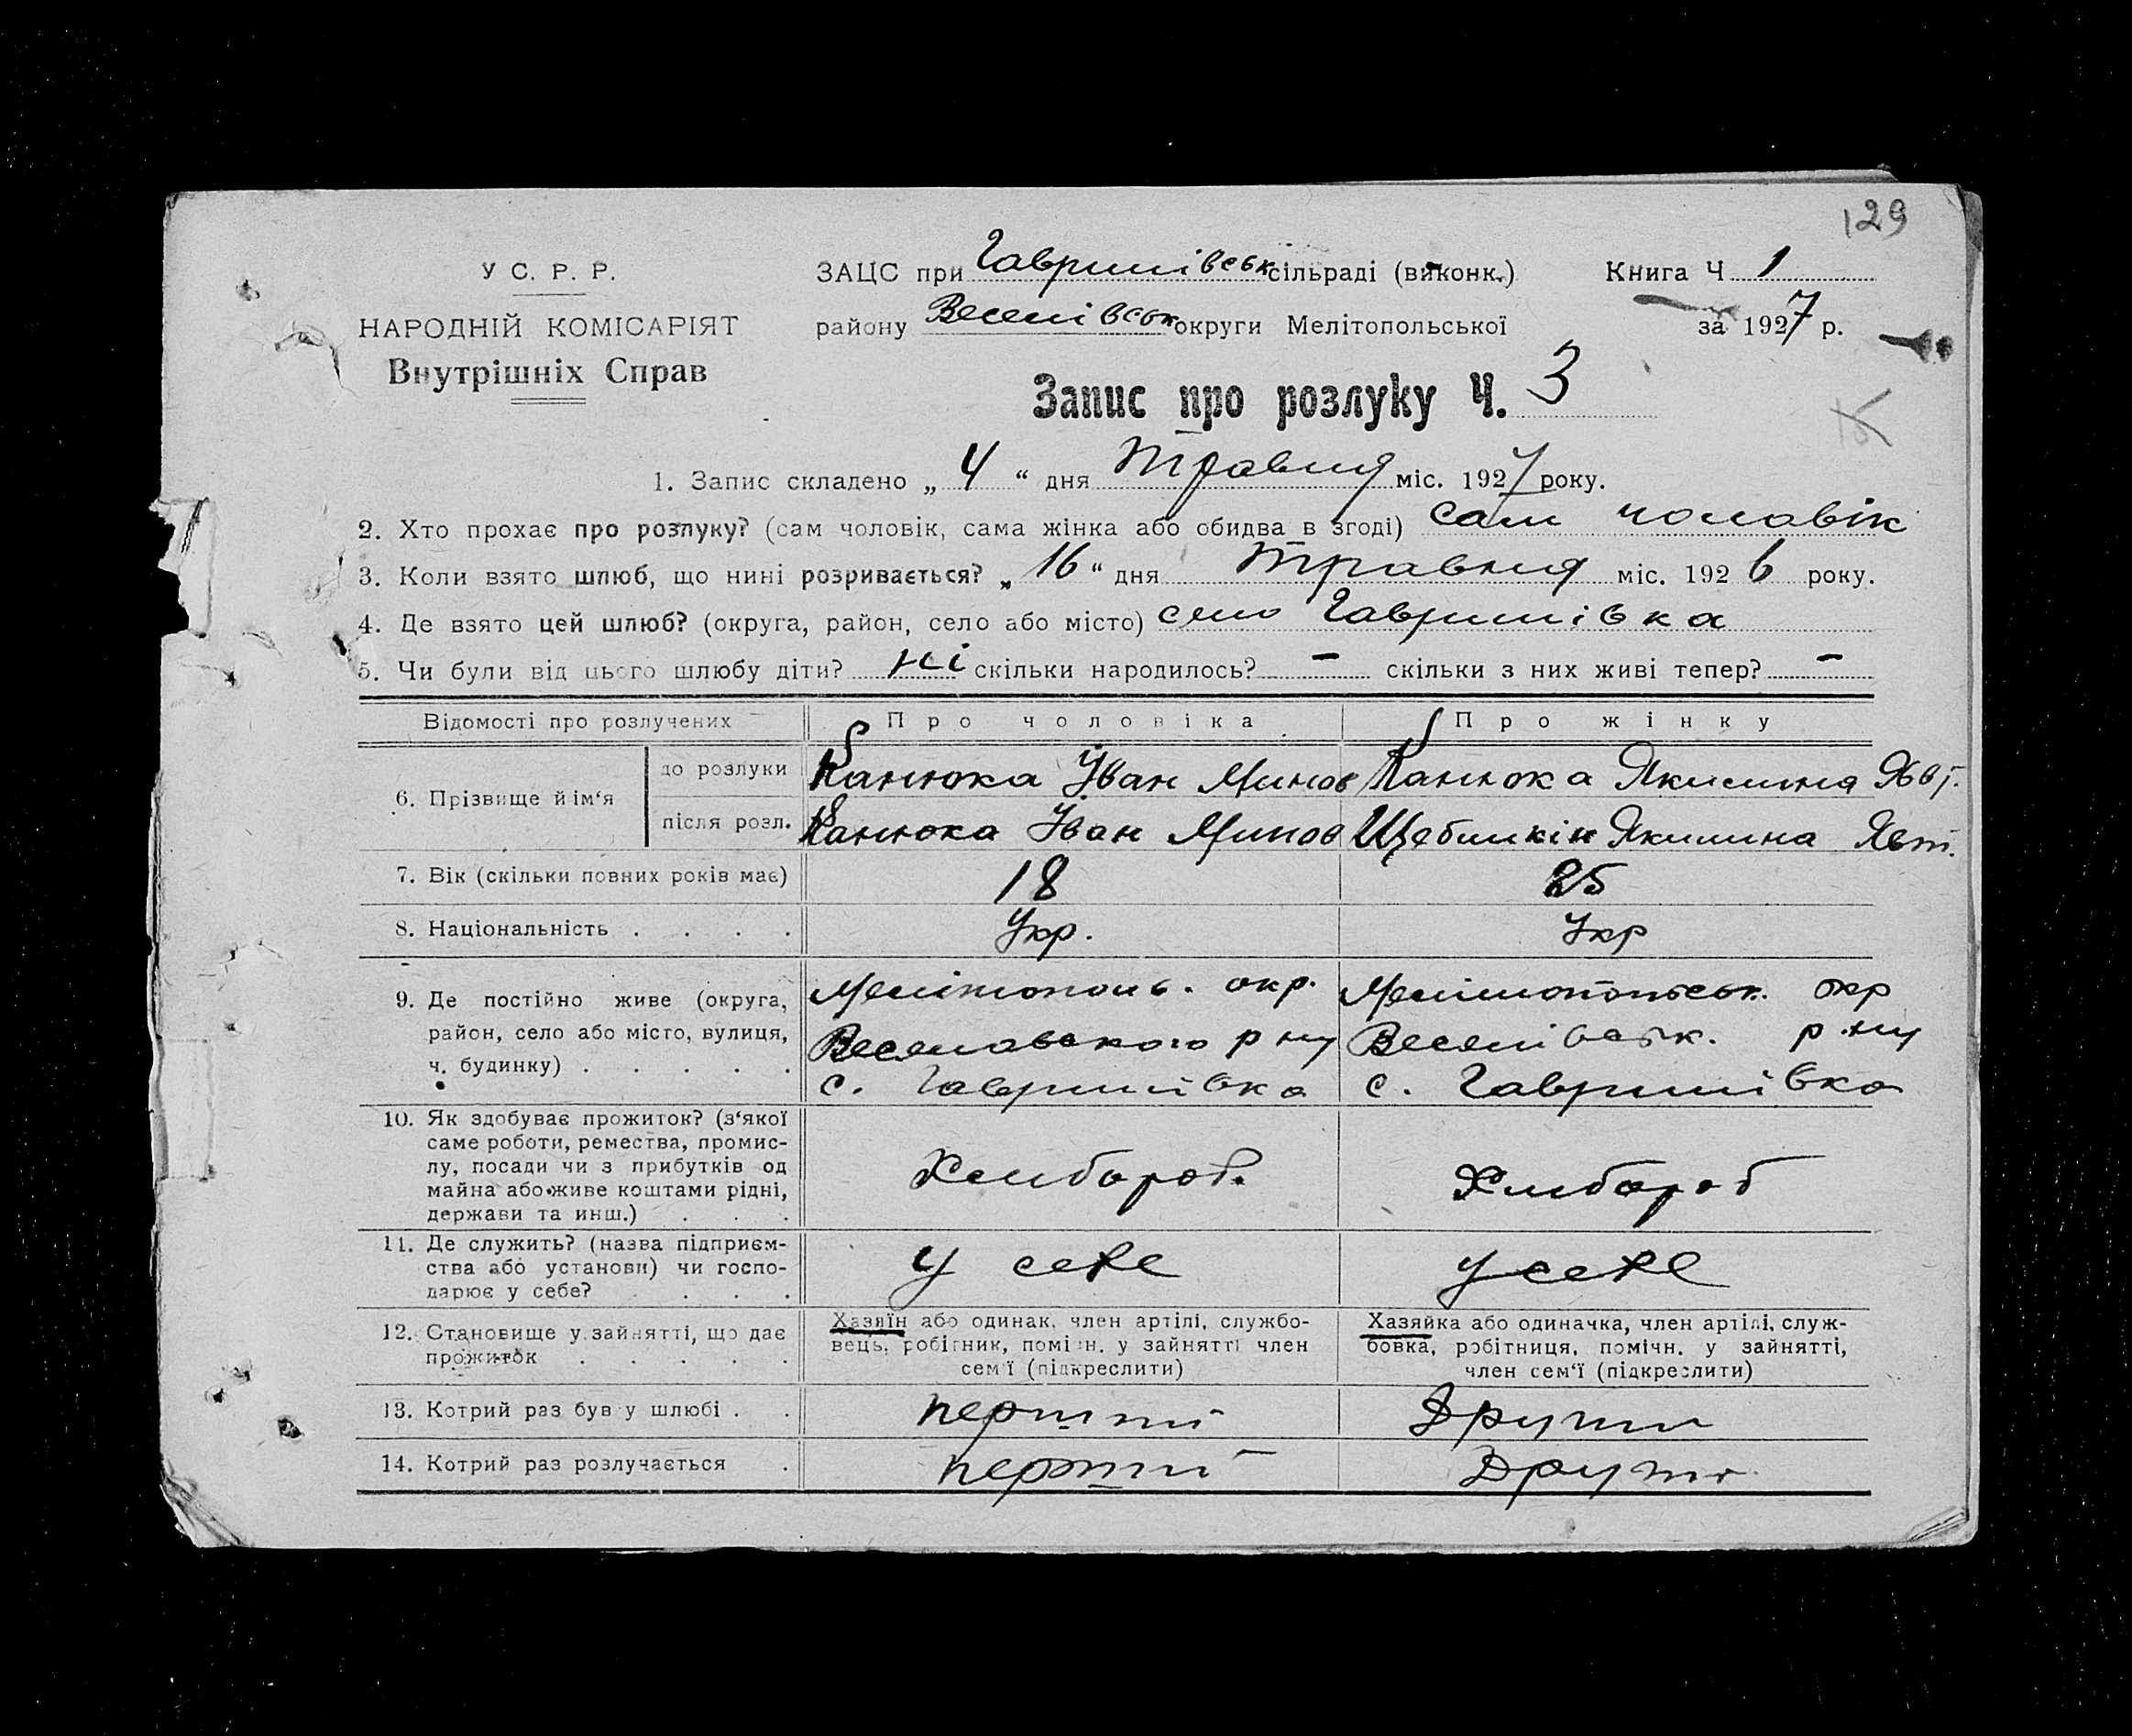 129
У С. Р. Р.
НАРОДНІЙ КОМІСАРІЯТ
Внутрішніх Справ
ЗАЦС при Гаврилівськ сільраді (виконк.)
району Веселівськ округи Мелітопольської
Книга Ч 1
за 1927 р.
Запис про розлуку Ч. 3
К
1. Запис складено „ 4 “ дня травня міс. 1927 року.
2. Хто прохає про розлуку? (сам чоловік, сама жінка або обидва в згоді) сам чоловік
3. Коли взято шлюб, що нині розривається? „ 16 “ дня травня міс. 1926 року.
4. Де взято цей шлюб? (округа, район, село або місто) село Гаврилівка
5. Чи були від цього шлюбу діти? ні скільки народилось? - скільки з них живі тепер? -
Відомості про розлучених
Про чоловіка
Про жінку
6. Прізвище й ім‘я
до розлуки
Канюка Іван Минов
Канюка Якилина Явт.
після розл.
Канюка Іван Минов
Щебликін Якилина Явт.
7. Вік (скільки повних років має)
18
25
8. Національність . . . .
Укр.
Укр
9. Де постійно живе (округа,
район, село або місто, вулиця,
ч. будинку) . . . . .
Мелітополь. окр.
Веселовского р ну
с. Гаврилівка
Мелітопольськ. окр
Веселівськ. р-ну
с. Гаврилівка
10. Як здобуває прожиток? (з‘якої
саме роботи, ремества, промис-
лу, посади чи з прибутків од
майна або живе коштами рідні,
держави та инш.) . . .
Хлибороб.
Хлибороб
11. Де служить? (назва підприєм-
ства або установи) чи госпо-
дарює у себе? . . . .
у себе
у себе
12. Становище у зайнятті, що дає
прожиток . . . . .
Хазяїн або одинак, член артілі, службо-
вець, робітник, помічн. у зайнятті член
сем‘ї (підкреслити)
Хазяйка або одиначка, член артілі, служ-
бовка, робітниця, помічн. у зайнятті,
член сем‘ї (підкреслити)
13. Котрий раз був у шлюбі . .
перший
14. Котрий раз розлучається .
перший